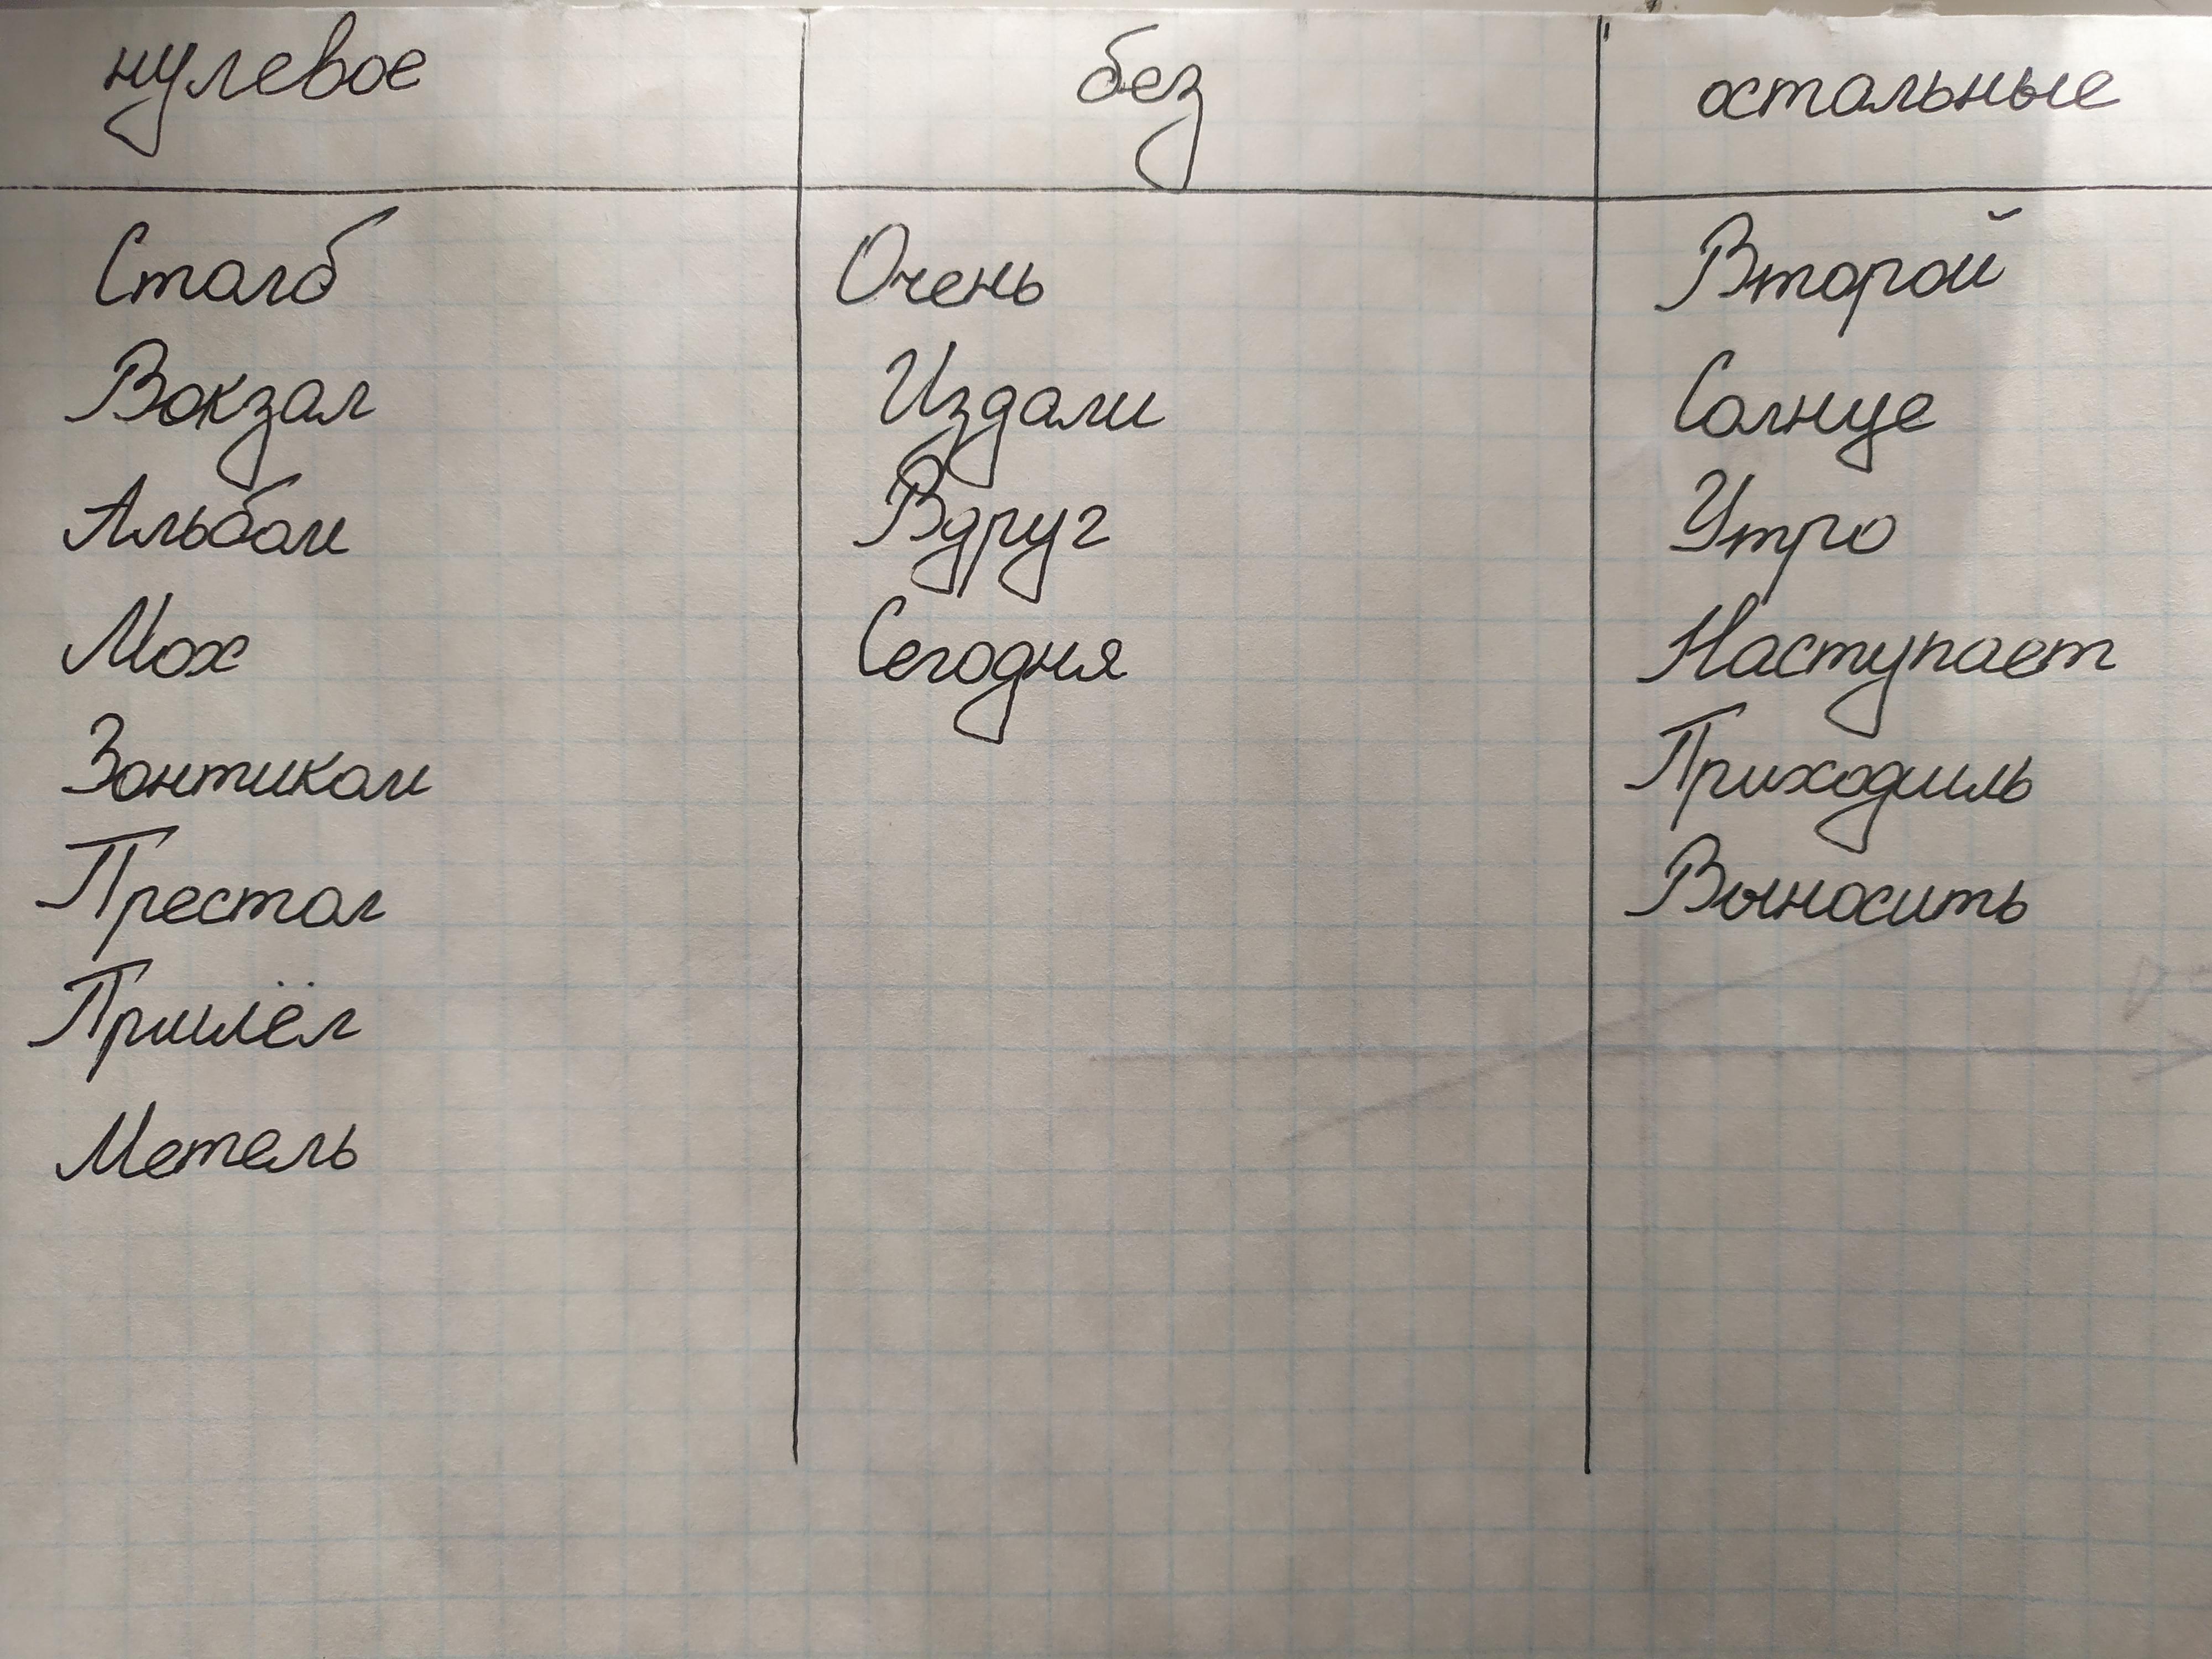 нулевое без остальные
Столб Очень Второй
Вокзал Издали Солнце
Альбом Вдруг Утро
Мох Сегодня Наступает
Зонтиком Приходиль
Престол Выносить
Пришёл
Метель